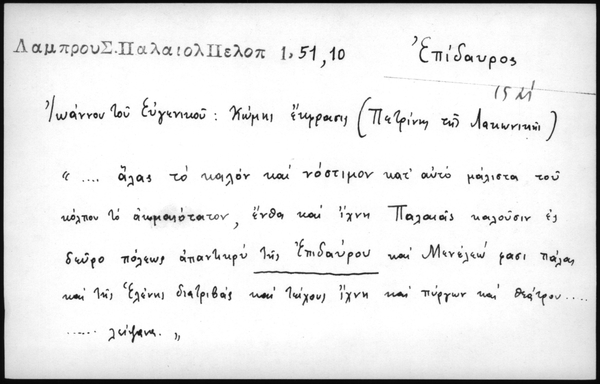 ΛαμπρουΣ.ΠαλαιολΠελοπ 1,51,10
Ἐπίδαυρος
Ἰωάννου τοῦ Εὐγενικοῦ: Κώμης ἔκφρασις (Πετρίνης τῆς Λακωνικῆς)
" .... ἅλας τὸ καλόν καὶ νόστιμον κατ' αὐτὸ μάλιστα τοῦ
κόλπου τὸ ἀκμαιότατον, ἔνθα καὶ ἴχνη Παλαιᾶς καλοῦσιν ἐς
δεῦρο πόλεως ἀπαντικρὺ τῆς Ἐπιδαύρου καὶ Μενέλεῴ φασι πάλαι
καὶ τῆς Ἑλένης διατριβάς καὶ τείχους ἴχνη καὶ πύργων καὶ θεάτρου .....
...... λείψανα. "